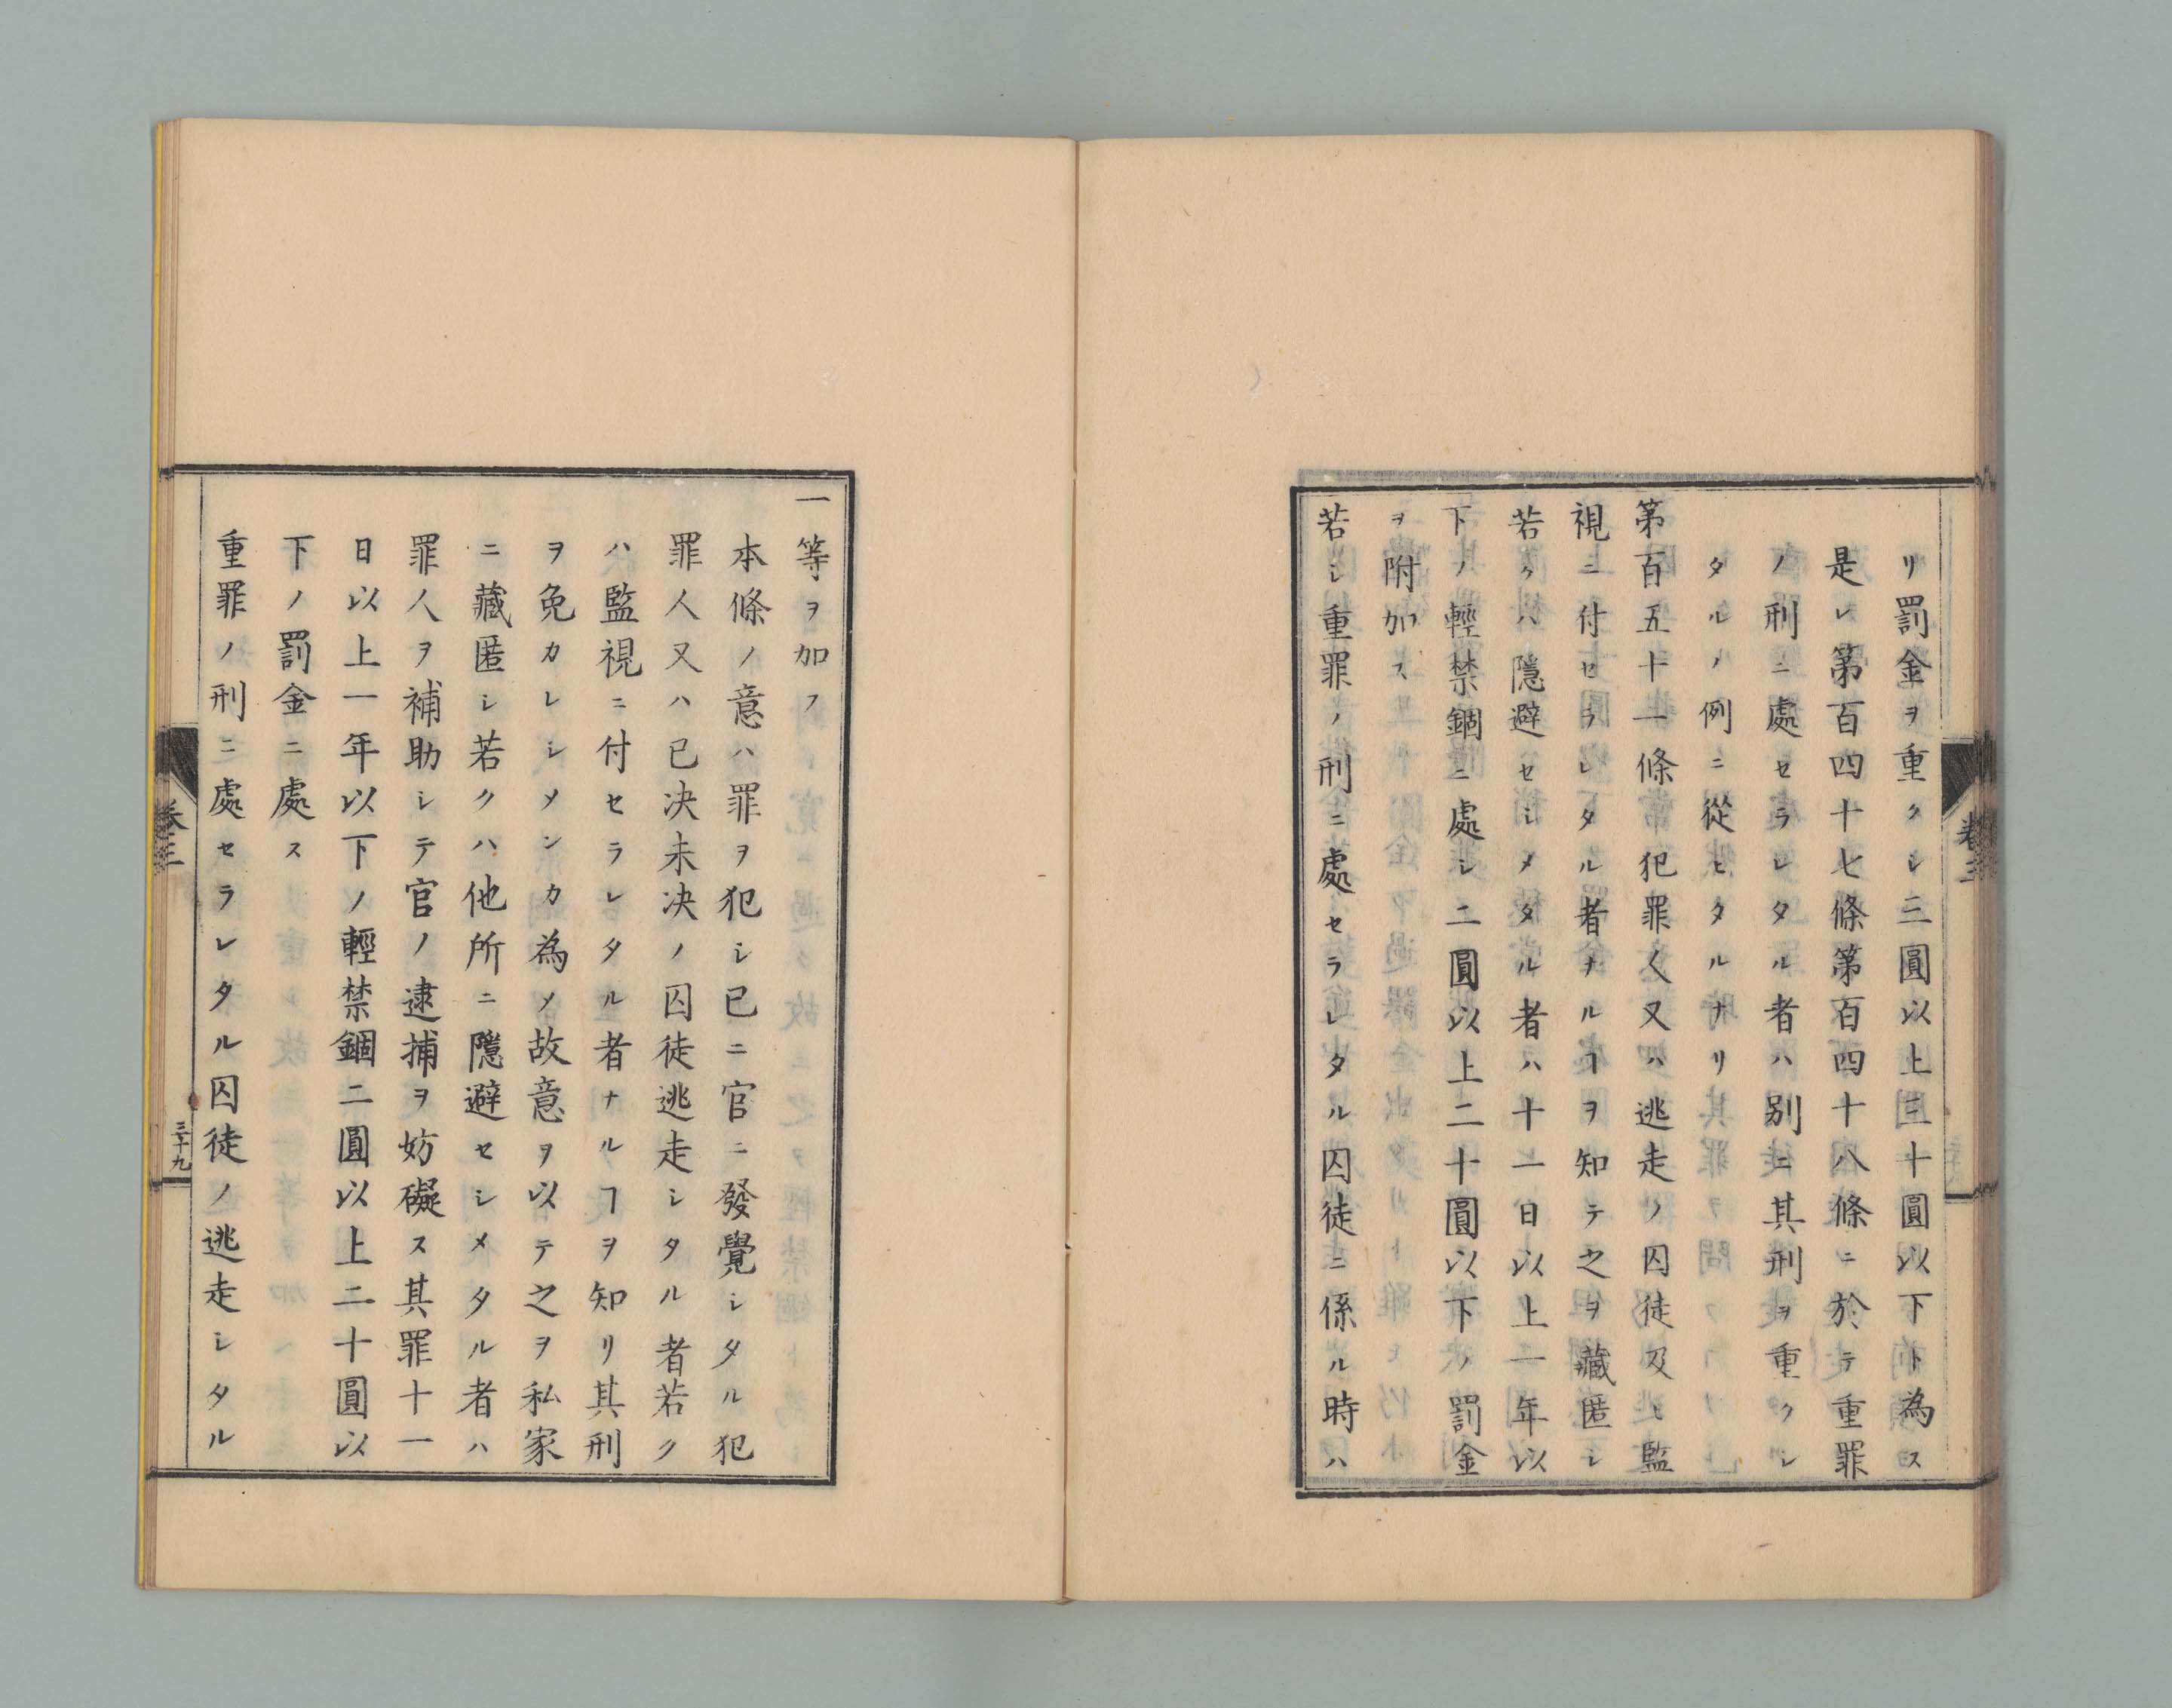 リ罰金ヲ重クシ三圓以上三十圓以下ト為ス
是レ第百四十七條第百四十八條ニ於テ重罪
ノ刑ニ處セラレタル者ハ別ニ其刑ヲ重クシ
タルノ例ニ從ヒタルナリ
第百五十一條犯罪人又ハ逃走ノ囚徒及ヒ監
視ニ付セラレタル者ナルヿヲ知テ之ヲ藏匿シ
若クハ隱避セシメタル者ハ十一日以上一年以
下ノ輕禁錮ニ處シ二圓以上二十圓以下ノ罰金
ヲ附加ス
若シ重罪ノ刑ニ處セラレタル囚徒ニ係ル時ハ
卷三
一等ヲ加フ
本條ノ意ハ罪ヲ犯シ已ニ官ニ發覺シタル犯
罪人又ハ已决未决ノ囚徒逃走シタル者若ク
ハ監視ニ付セラレタル者ナルヿヲ知リ其刑
ヲ免カレシメンカ為メ故意ヲ以テ之ヲ私家
ニ藏匿シ若クハ他所ニ隱避セシメタル者ハ
罪人ヲ補助シテ官ノ逮捕ヲ妨礙ス其罪十一
日以上一年以下ノ輕禁錮二圓以上二十圓以
下ノ罰金ニ處ス
重罪ノ刑ニ處セラレタル囚徒ノ逃走シタル
卷三
三十九